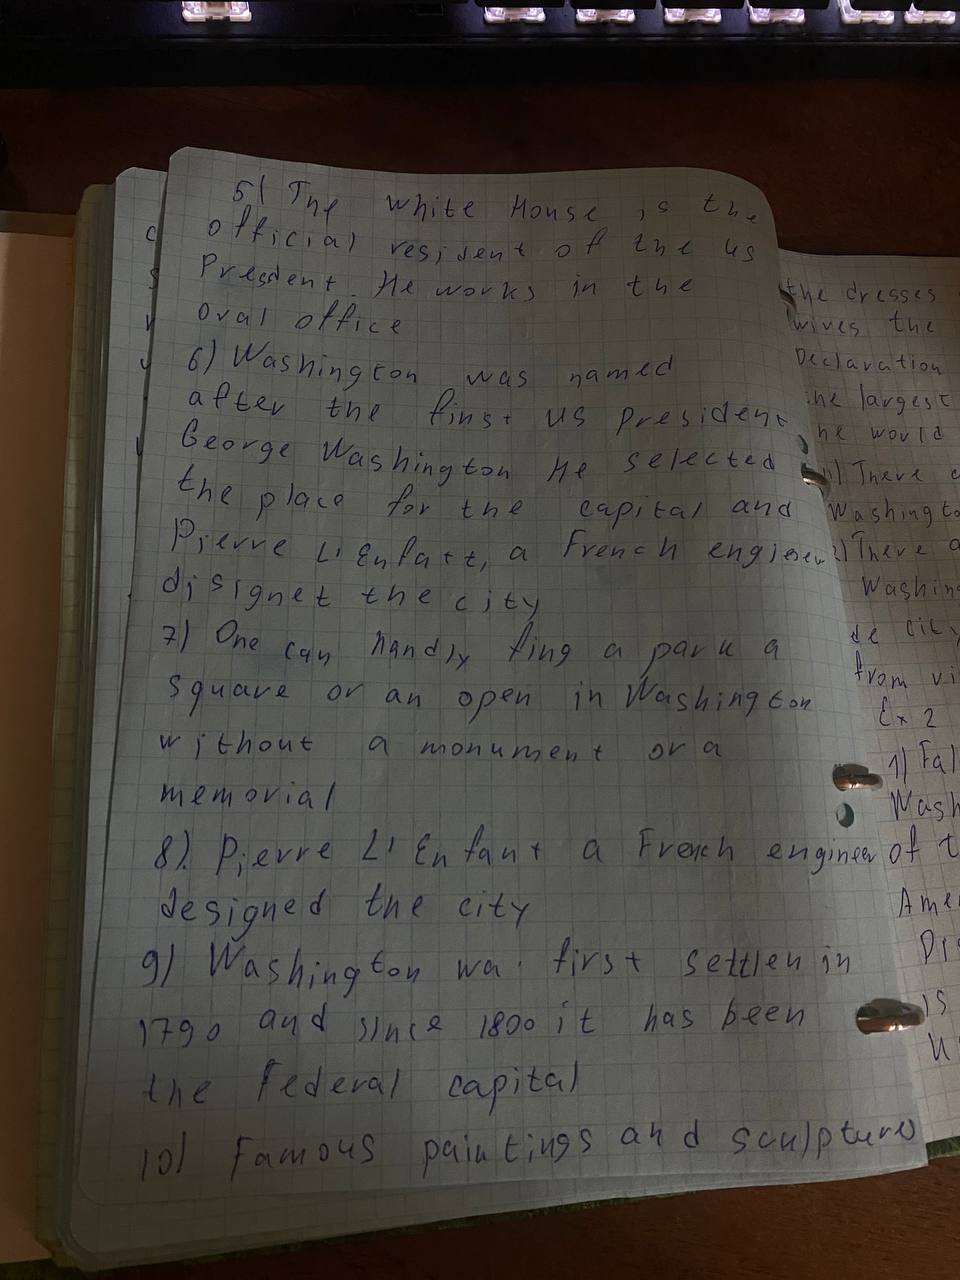 5) The White House is the
official resident of the US
President. He works in the
oval office
6) Washington was named
after the first US president
George Washington He selected
the place for the capital and
Pierre L'Enfatt, a French engineer
disignet the city
7) One can handly fing a park a
square or an open in Washington
without a monument or a
memorial
8). Pierre L'Enfant a French engineer
designed the city
9) Washington wa. first settlen in
1790 and since 1800 it has been
the Federal capital
10) Famous paintings and sculpture
the dresses
wives the
Declaration
the largest
he would
1) There
Washingto
2) There a
Washing
de city
from vi
Ex 2
1) Fal
Wash
of t
Ame
Di
is